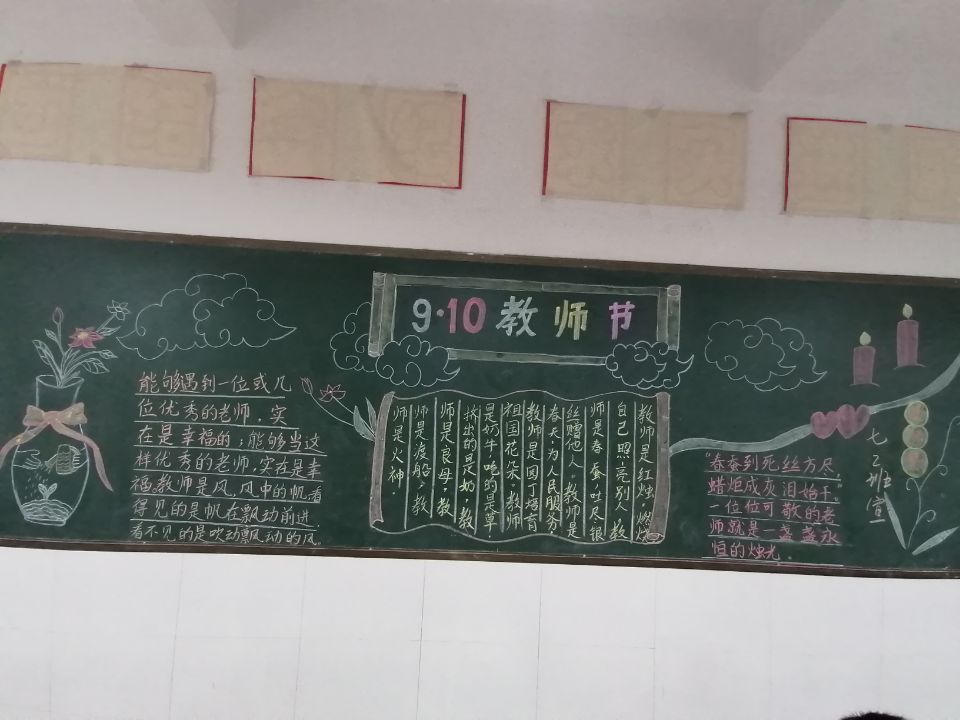 9·10教师节
能够遇到一位或几
位优秀的老师，实
在是幸福的；能够当这
样优秀的老师，实在是幸
福，教师是风，风中的帆，看
得见的是帆在飘动前进
看不见的是吹动飘动的风。
教师是红烛，燃烧
自己照亮别人，教
师是春蚕吐尽银
丝赠他人，教师是
春天，为人民服务，
教师是园丁培育
祖国花朵，教师
是奶牛，吃的是草，
挤出的是奶，教
师是良母，教
师是渡船，教
师是火神。
"春蚕到死丝方尽
蜡炬成灰泪始干"
一位位可敬的老
师就是一盏盏永
恒的烛光。
七2班宣